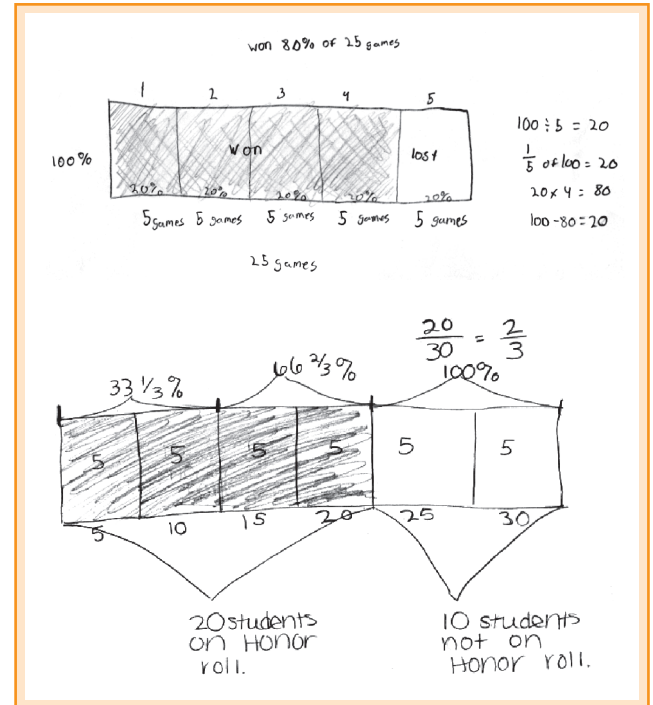 won 80% of 25 games
1 2 3 4 5
100%
won
lost
20% 20% 20% 20% 20%
5 games 5 games 5 games 5 games 5 games
25 games
100 ÷ 5 = 20
1/5 of 100 = 20
20 x 4 = 80
100 - 80 = 20
20/30 = 2/3
33 1/3% 66 2/3% 100%
5 5 5 5 5 5
5 10 15 20 25 30
20 students
on Honor
roll.
10 students
not on
Honor roll.